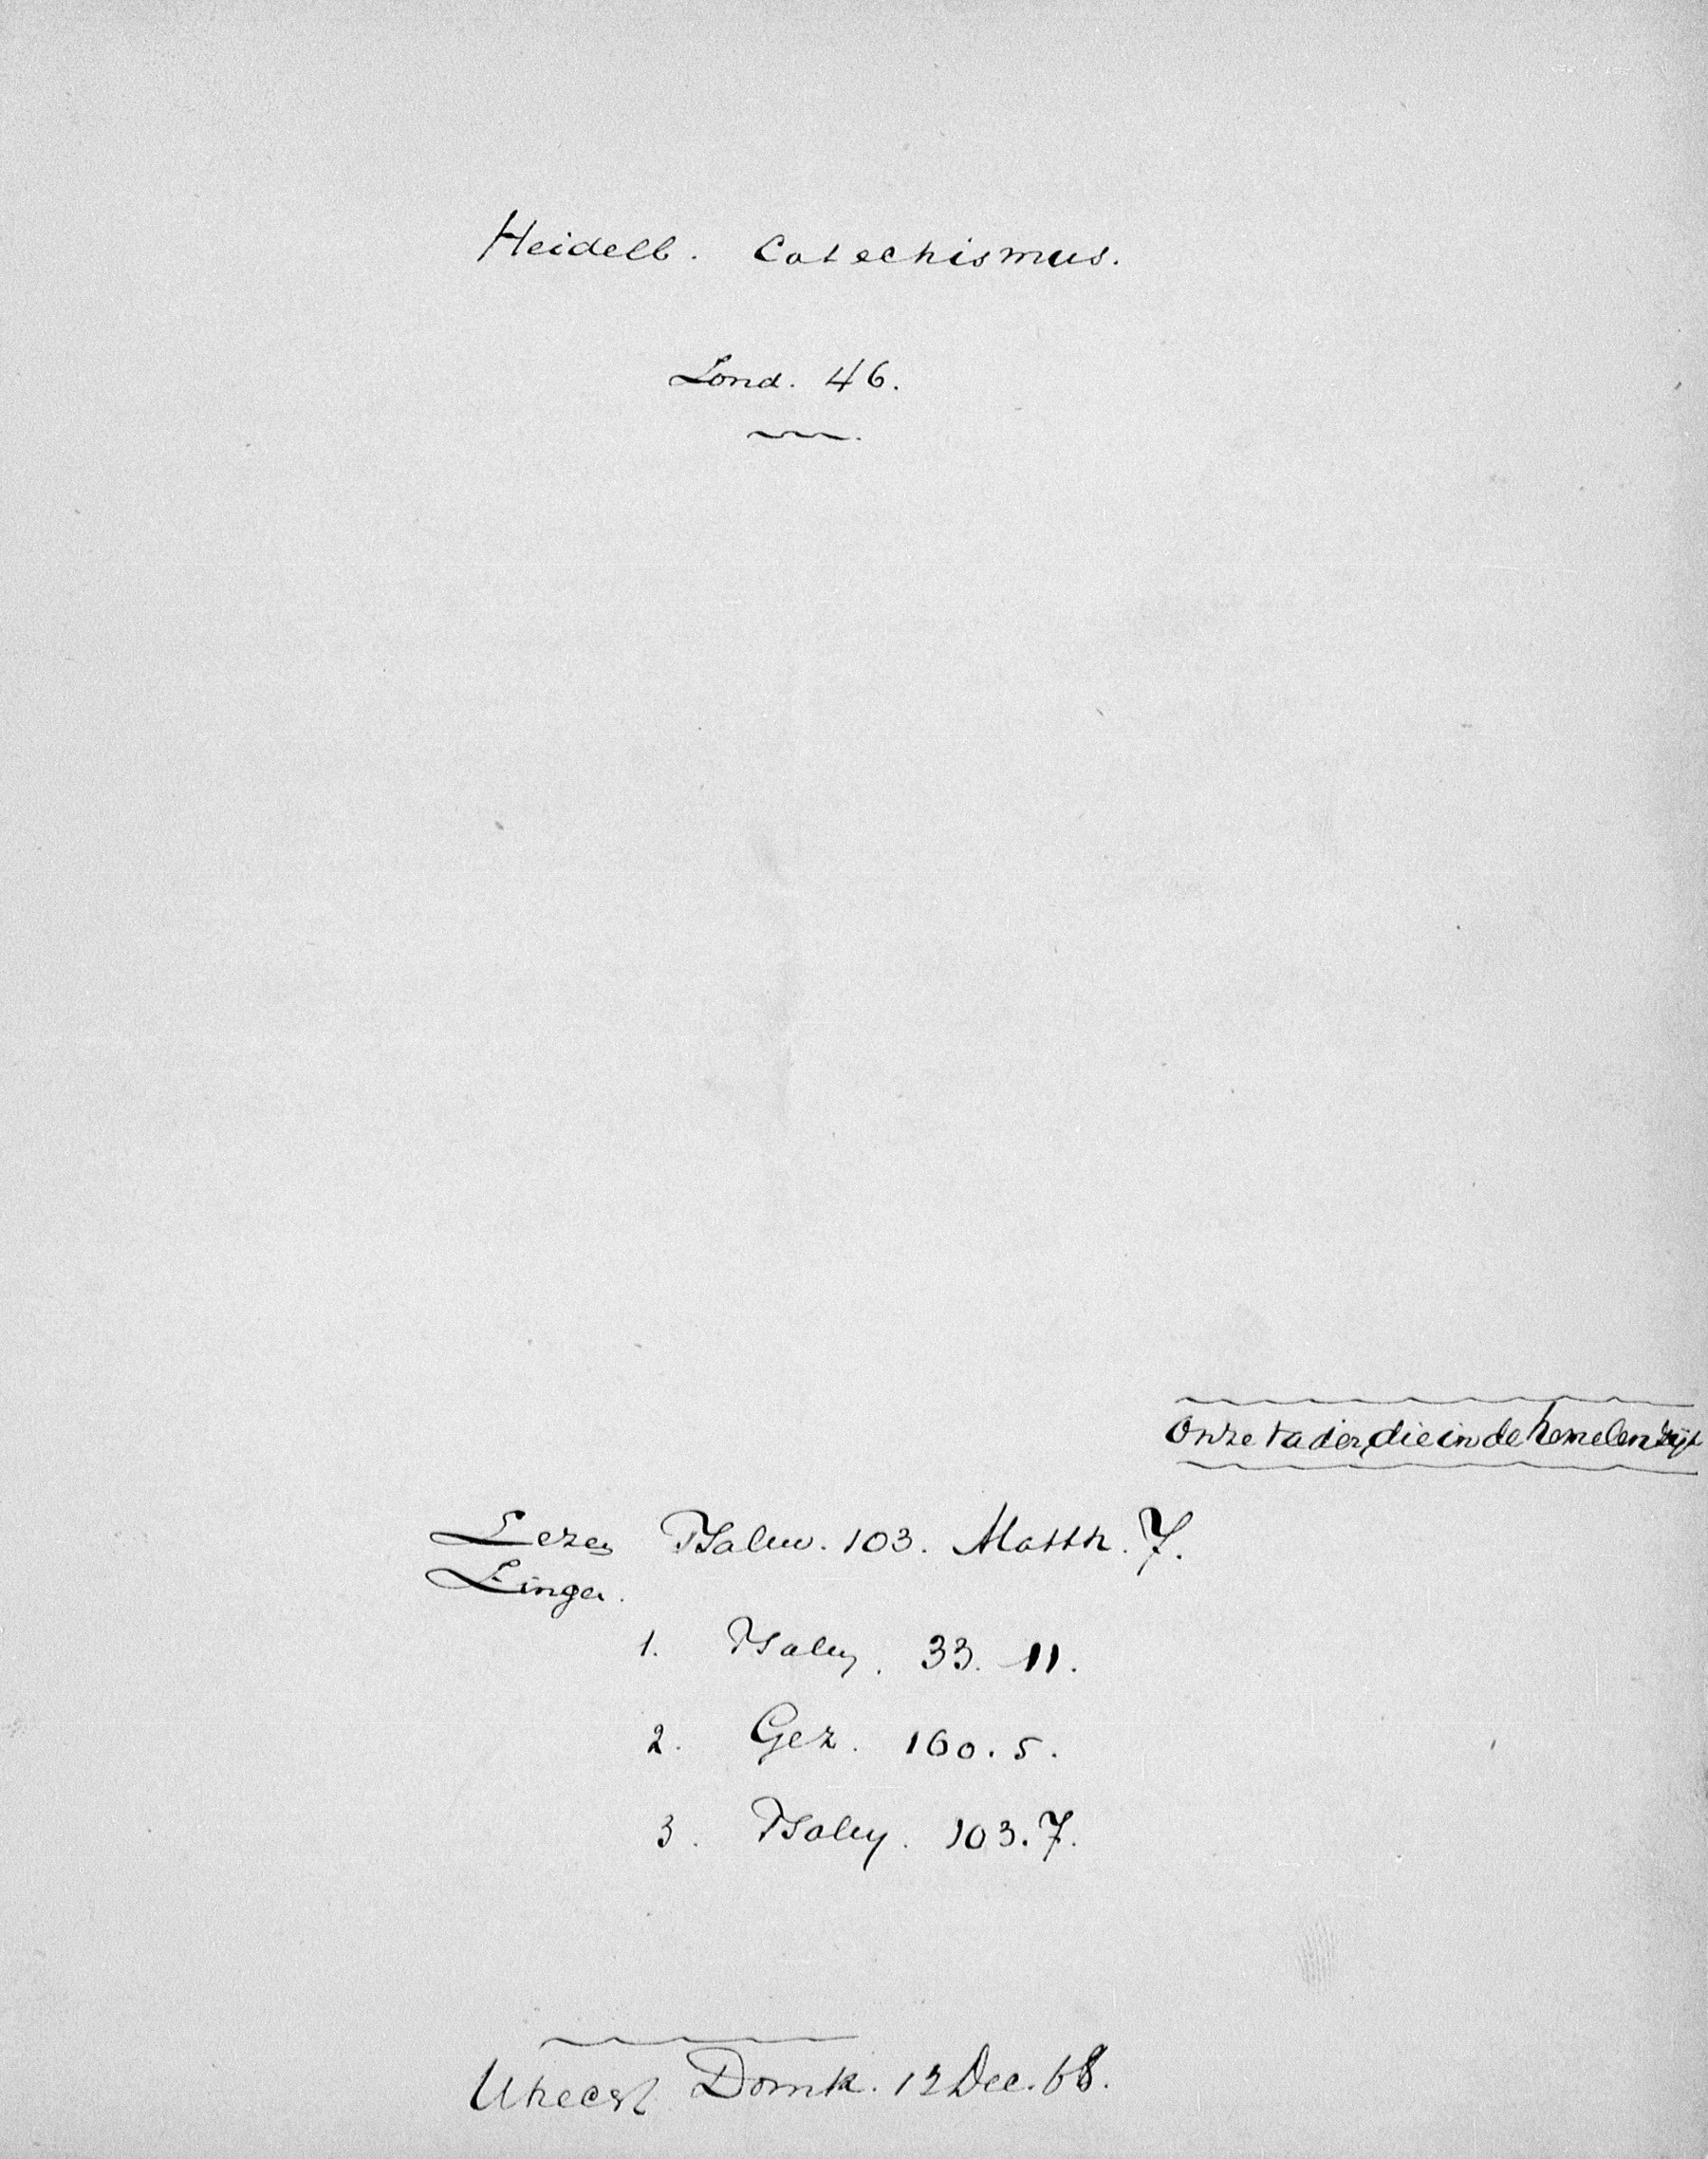 Heidelb. Catechismus.
Zond. 46.
Onze Vader, die in de hemelen zijt
Lezen Psalm. 103. Matth. 7.
Zingen.
1. Psalm. 33. 11.
2. Gez. 160. 5.
3. Psalm. 103. 7.
Utrecht Domk. 12 Dec. 68.